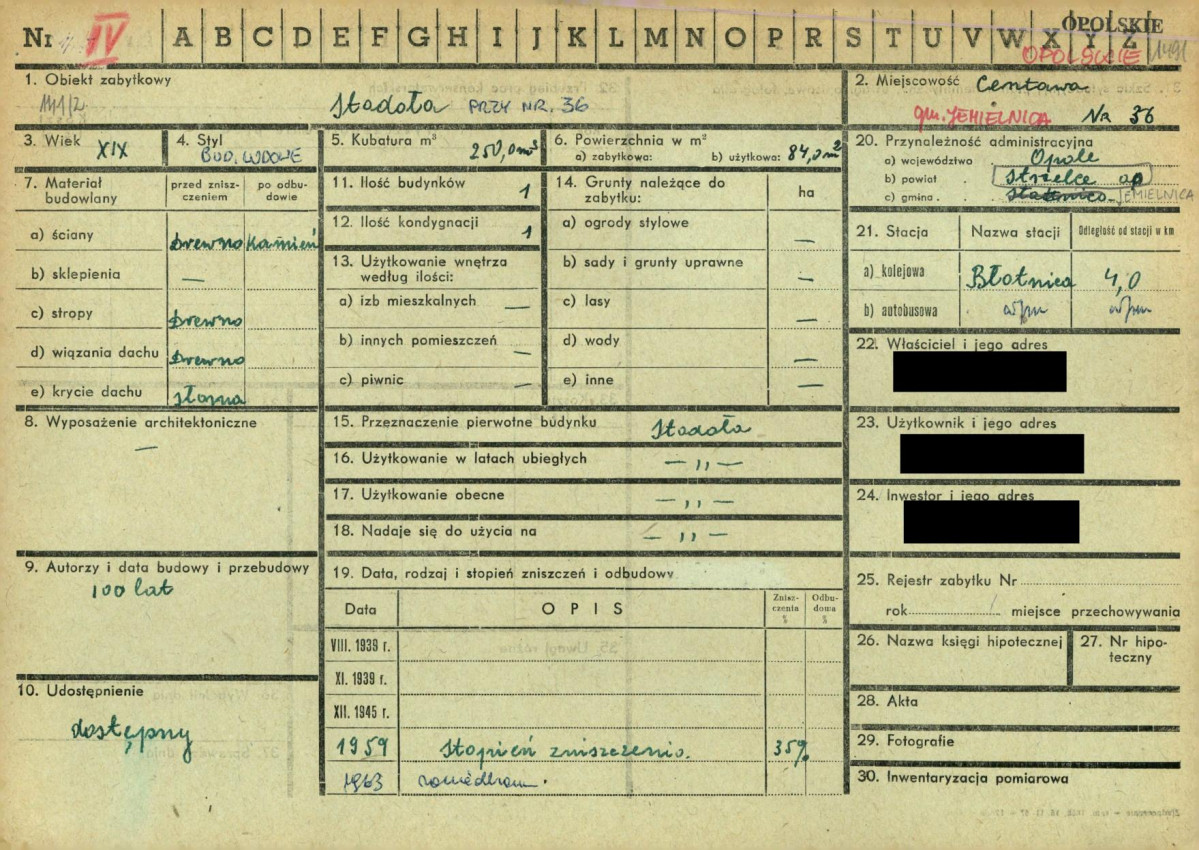 Nr IV A B C D E F G H I J K L M N O P R S T U V W X Y Z
OPOLSKIE
OPOLSKIE 1491
1. Obiekt zabytkowy
Stodoła PRZY NR. 36
2. Miejscowość Centawa
gm. JEMIELNICA Nr 36
3. Wiek XIX
4. Styl BUD. LUDOWE
5. Kubatura m³ 250,0 m³
6. Powierzchnia w m²
a) zabytkowa: b) użytkowa: 84,0 m²
20. Przynależność administracyjna
a) województwo Opole
b) powiat Strzelce op
c) gmina JEMIELNICA
7. Materiał budowlany
przed zniszczeniem
po odbudowie
a) ściany Drewno Kamień
b) sklepienia —
c) stropy Drewno
d) wiązania dachu Drewno
e) krycie dachu słoma
11. Ilość budynków 1
12. Ilość kondygnacji 1
13. Użytkowanie wnętrza
według ilości:
a) izb mieszkalnych —
b) innych pomieszczeń —
c) piwnic —
14. Grunty należące do
zabytku: ha
a) ogrody stylowe —
b) sady i grunty uprawne —
c) lasy —
d) wody —
e) inne —
21. Stacja Nazwa stacji Odległość od stacji w km
a) kolejowa Błotnica 4,0
b) autobusowa
22. Właściciel i jego adres
8. Wyposażenie architektoniczne
—
15. Przeznaczenie pierwotne budynku Stodoła
16. Użytkowanie w latach ubiegłych — ,, —
17. Użytkowanie obecne — ,, —
18. Nadaje się do użycia na — ,, —
23. Użytkownik i jego adres
24. Inwestor i jego adres
9. Autorzy i data budowy i przebudowy
100 lat
10. Udostępnienie
dostępny
19. Data, rodzaj i stopień zniszczeń i odbudowy
Data OPIS Zniszczenia % Odbudowa %
VIII. 1939 r.
XI. 1939 r.
XII. 1945 r.
1959 Stopień zniszczenia. 35%
1963
25. Rejestr zabytku Nr
rok miejsce przechowywania
26. Nazwa księgi hipotecznej
27. Nr hipoteczny
28. Akta
29. Fotografie
30. Inwentaryzacja pomiarowa